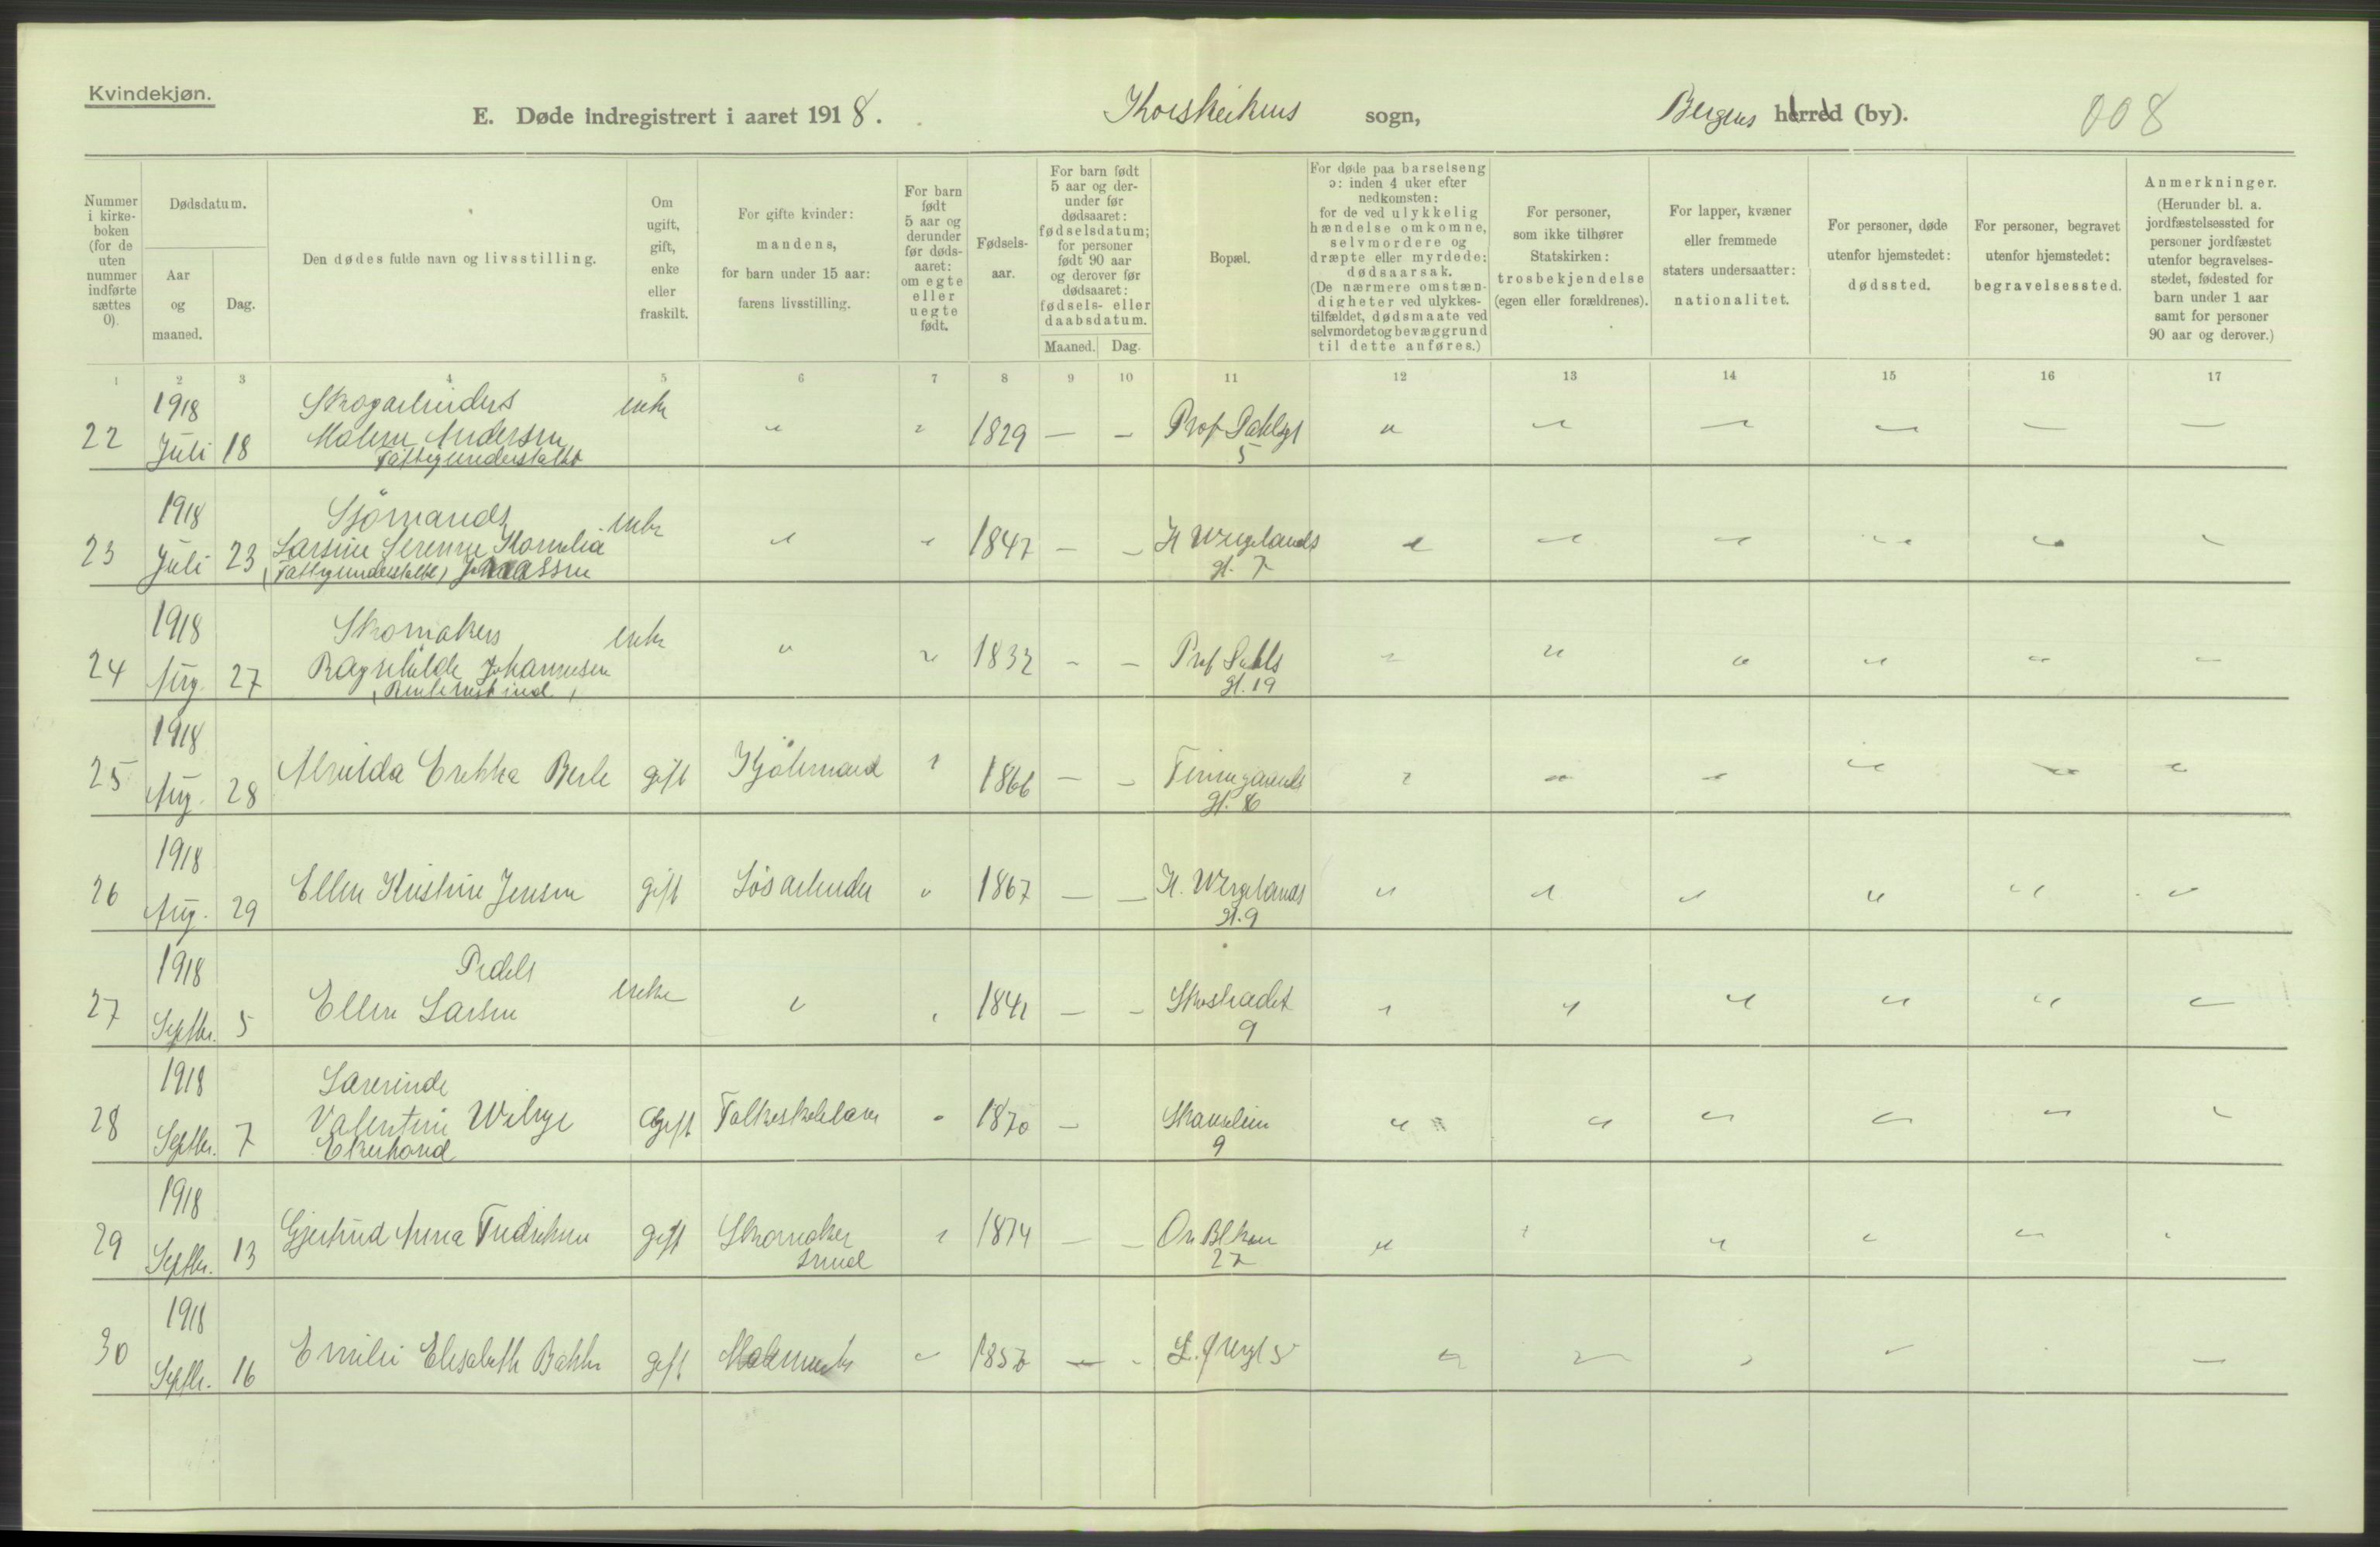 Kvindekjøn.
E. Døde indregistrert i aaret 1918. Korskirkens sogn, Bergens herred (by). 008
Nummer i kirke-boken (for de uten nummer indførte sættes 0).
Dødsdatum.
Aar og maaned.
Dag.
Den dødes fulde navn og livsstilling.
Om ugift, gift, enke eller fraskilt.
For gifte kvinder: mandens, for barn under 15 aar: farens livsstilling.
For barn født 5 aar og derunder før døds-aaret: om egte eller uegte født.
Fødsels-aar.
For barn født 5 aar og der-under før dødsaaret: fødselsdatum; for personer født 90 aar og derover før dødsaaret: fødsels- eller daabsdatum.
Maaned.
Dag.
Bopæl.
For døde paa barselseng ɔ: inden 4 uker efter nedkomsten: for de ved ulykkelig hændelse omkomne, selvmordere og dræpte eller myrdede: dødsaarsak. (De nærmere omstæn-digheter ved ulykkes-tilfældet, dødsmaate ved selvmordet og bevæggrund til dette anføres.)
For personer, som ikke tilhører Statskirken: trosbekjendelse (egen eller forældrenes).
For lapper, kvæner eller fremmede staters undersaatter: nationalitet.
For personer, døde utenfor hjemstedet: dødssted.
For personer, begravet utenfor hjemstedet: begravelsessted.
Anmerkninger. (Herunder bl. a. jordfæstelsessted for personer jordfæstet utenfor begravelses-stedet, fødested for barn under 1 aar samt for personer 90 aar og derover.)
1 2 3 4 5 6 7 8 9 10 11 12 13 14 15 16 17
1918 enke
22 Juli 18 Malene Andersen " " 1829 — — Prof Dahlsgt " " " " — —
Fattigunderstøttet 5
1918 Sjømands enke
23 Juli 23 Larsine Serenne Kornelia " " 1847 — — H Wergelands " " " " " "
(Fattigunderstøttet) gt. 7
1918 Skomakers enke
24 Aug. 27 Ragnhilde Johannesen " " 1832 — — Prof Dahls " " " " " "
gt. 19
1918
25 Aug. 28 Alvilda Erikka Berle gift Kjølemand " 1866 — — Finnegaards " " " " " "
gt. 6
1918
26 Aug. 29 Ellen Kristine Jensen gift Løsarbeider " 1867 — — H. Wergelands " " " " " "
gt. 9
1918 Pedels enke
27 Septbr. 5 Ellen Larsen " " 1841 — — Skostrædet " " " " " "
9
1918 Lærerinde
28 Septbr. 7 Valentine gift Folkeskolelærer " 1870 — Skanselien " " " " " "
Ekerhovd 9
1918
29 Septbr. 13 Gjertrud Anna Fredriksen gift Skomaker " 1874 — — " " " " " "
svend 27
1918
30 Septbr. 16 Emilie Elisabeth Bakke gift — — " " " " —